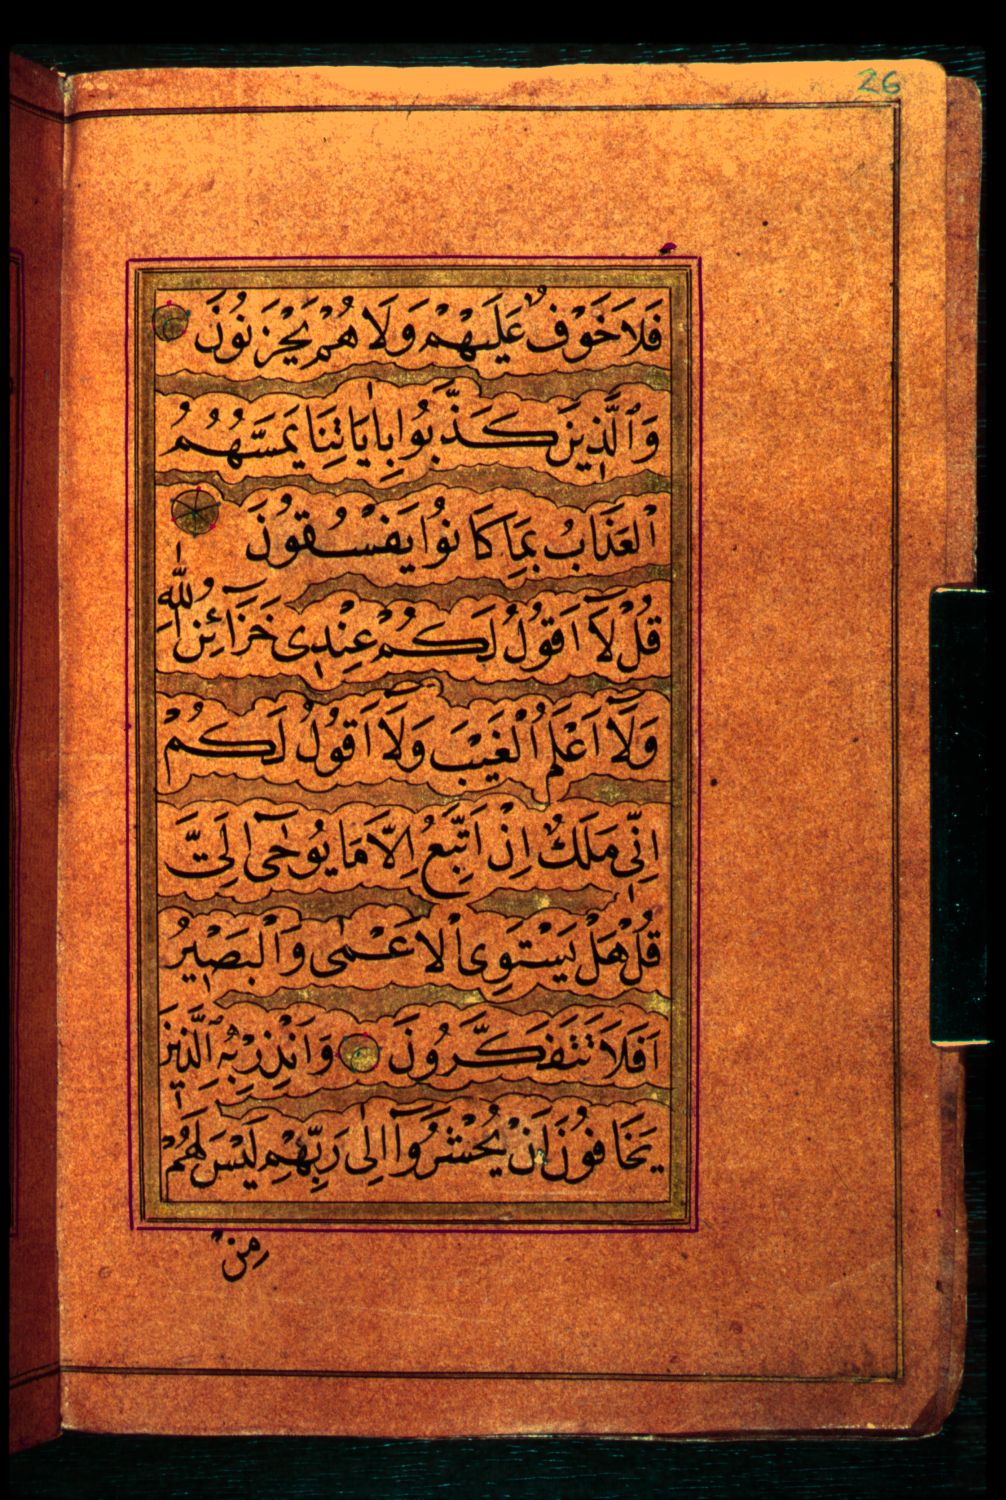 26
فَلَا خَوْفٌ عَلَيْهِمْ وَلَا هُمْ يَحْزَنُونَ
وَٱلَّذِينَ كَذَّبُوا بِاٰيَاتِنَا يَمَسُّهُمُ
ٱلْعَذَابُ بِمَا كَانُوا يَفْسُقُونَ
قُلْ لَآ اَقُولُ لَكُمْ عِنْدِى خَزَآئِنُ ٱللّٰهِ
وَلَآ اَعْلَمُ ٱلْغَيْبَ وَلَآ اَقُولُ لَكُمْ
اِنِّى مَلَكٌ اِنْ اَتَّبِعُ اِلَّا مَا يُوحٰٓى اِلَىَّ
قُلْ هَلْ يَسْتَوِى ٱلْاَعْمٰى وَالْبَصِيرُ
اَفَلَا تَتَفَكَّرُونَ وَاَنْذِرْ بِهِ ٱلَّذِينَ
يَخَافُونَ اَنْ يُحْشَرُوٓا اِلٰى رَبِّهِمْ لَيْسَ لَهُمْ
مِنْ